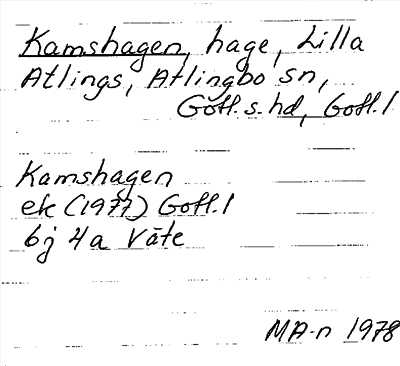 Kamshagen, hage, Lilla
Atlings, Atlingbo sn,
Gotl. s. hd, Gotl. l
Kamshagen
ek (1977) Gotl. l
6j 4a Väte
MA-n 1978